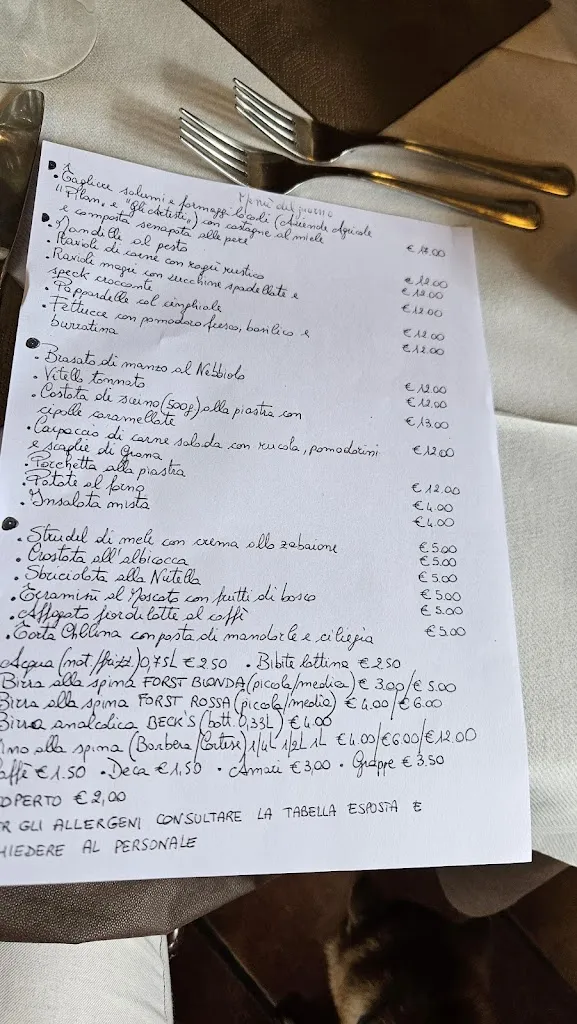 Menù del giorno
• Tagliere salumi e formaggi locali (Aziende Agricole
"Pian, e "gli Artisti,,) con castagne al miele
e composta senapata alle pere € 17.00
• Mandilli al pesto € 12.00
• Ravioli di carne con ragù rustico € 12.00
• Ravioli magri con zucchine spadellate e
speck croccante € 12.00
• Pappardelle col cinghiale € 12.00
• Fettucce con pomodoro fresco, basilico e
burratina € 12.00
• Brasato di manzo al Nebbiolo € 12.00
• Vitello tonnato € 12.00
• Costata di suino (500g) alla piastra con
cipolle caramellate € 13.00
• Carpaccio di carne salada con rucola, pomodorini
e scaglie di Grana € 12.00
• Porchetta alla piastra € 12.00
• Patate al forno € 4.00
• Insalata mista € 4.00
• Strudel di mele con crema allo zabaione € 5.00
• Crostata all'albicocca € 5.00
• Sbriciolata alla Nutella € 5.00
• Tiramisù al Moscato con frutti di bosco € 5.00
• Affogato fiordilatte al caffè € 5.00
• Torta con pasta di mandorle e ciliegia € 5.00
Acqua (nat./frizz.) 0,75L € 2.50 • Bibite lattina € 2.50
Birra alla spina FORST BIONDA (picola/media) € 3.00/€ 5.00
Birra alla spina FORST ROSSA (picola/media) € 4.00/€ 6.00
Birra analcolica BECK'S (bott. 0,33L) € 4.00
ino alla spina (Barbera/Cortese) 1/4L 1/2L 1L € 4.00/€6.00/€12.00
affè € 1.50 • Deca € 1,50 • Amari € 3,00 • Grappe € 3.50
OPERTO € 2,00
R GLI ALLERGENI CONSULTARE LA TABELLA ESPOSTA E
HIEDERE AL PERSONALE